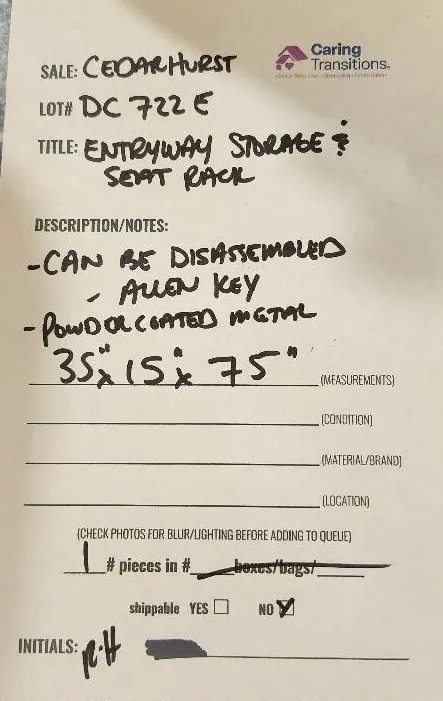 Caring
Transitions®
SALE: CEDARHURST
LOT# DC 722 E
TITLE: ENTRYWAY STORAGE &
SEAT RACK
DESCRIPTION/NOTES:
- CAN BE DISASSEMBLED
- ALLEN KEY
- POWDERCOATED METAL
35" x 15" x 75" (MEASUREMENTS)
(CONDITION)
(MATERIAL/BRAND)
(LOCATION)
(CHECK PHOTOS FOR BLUR/LIGHTING BEFORE ADDING TO QUEUE)
1 # pieces in # boxes/bags/
shippable YES NO
INITIALS: R.H